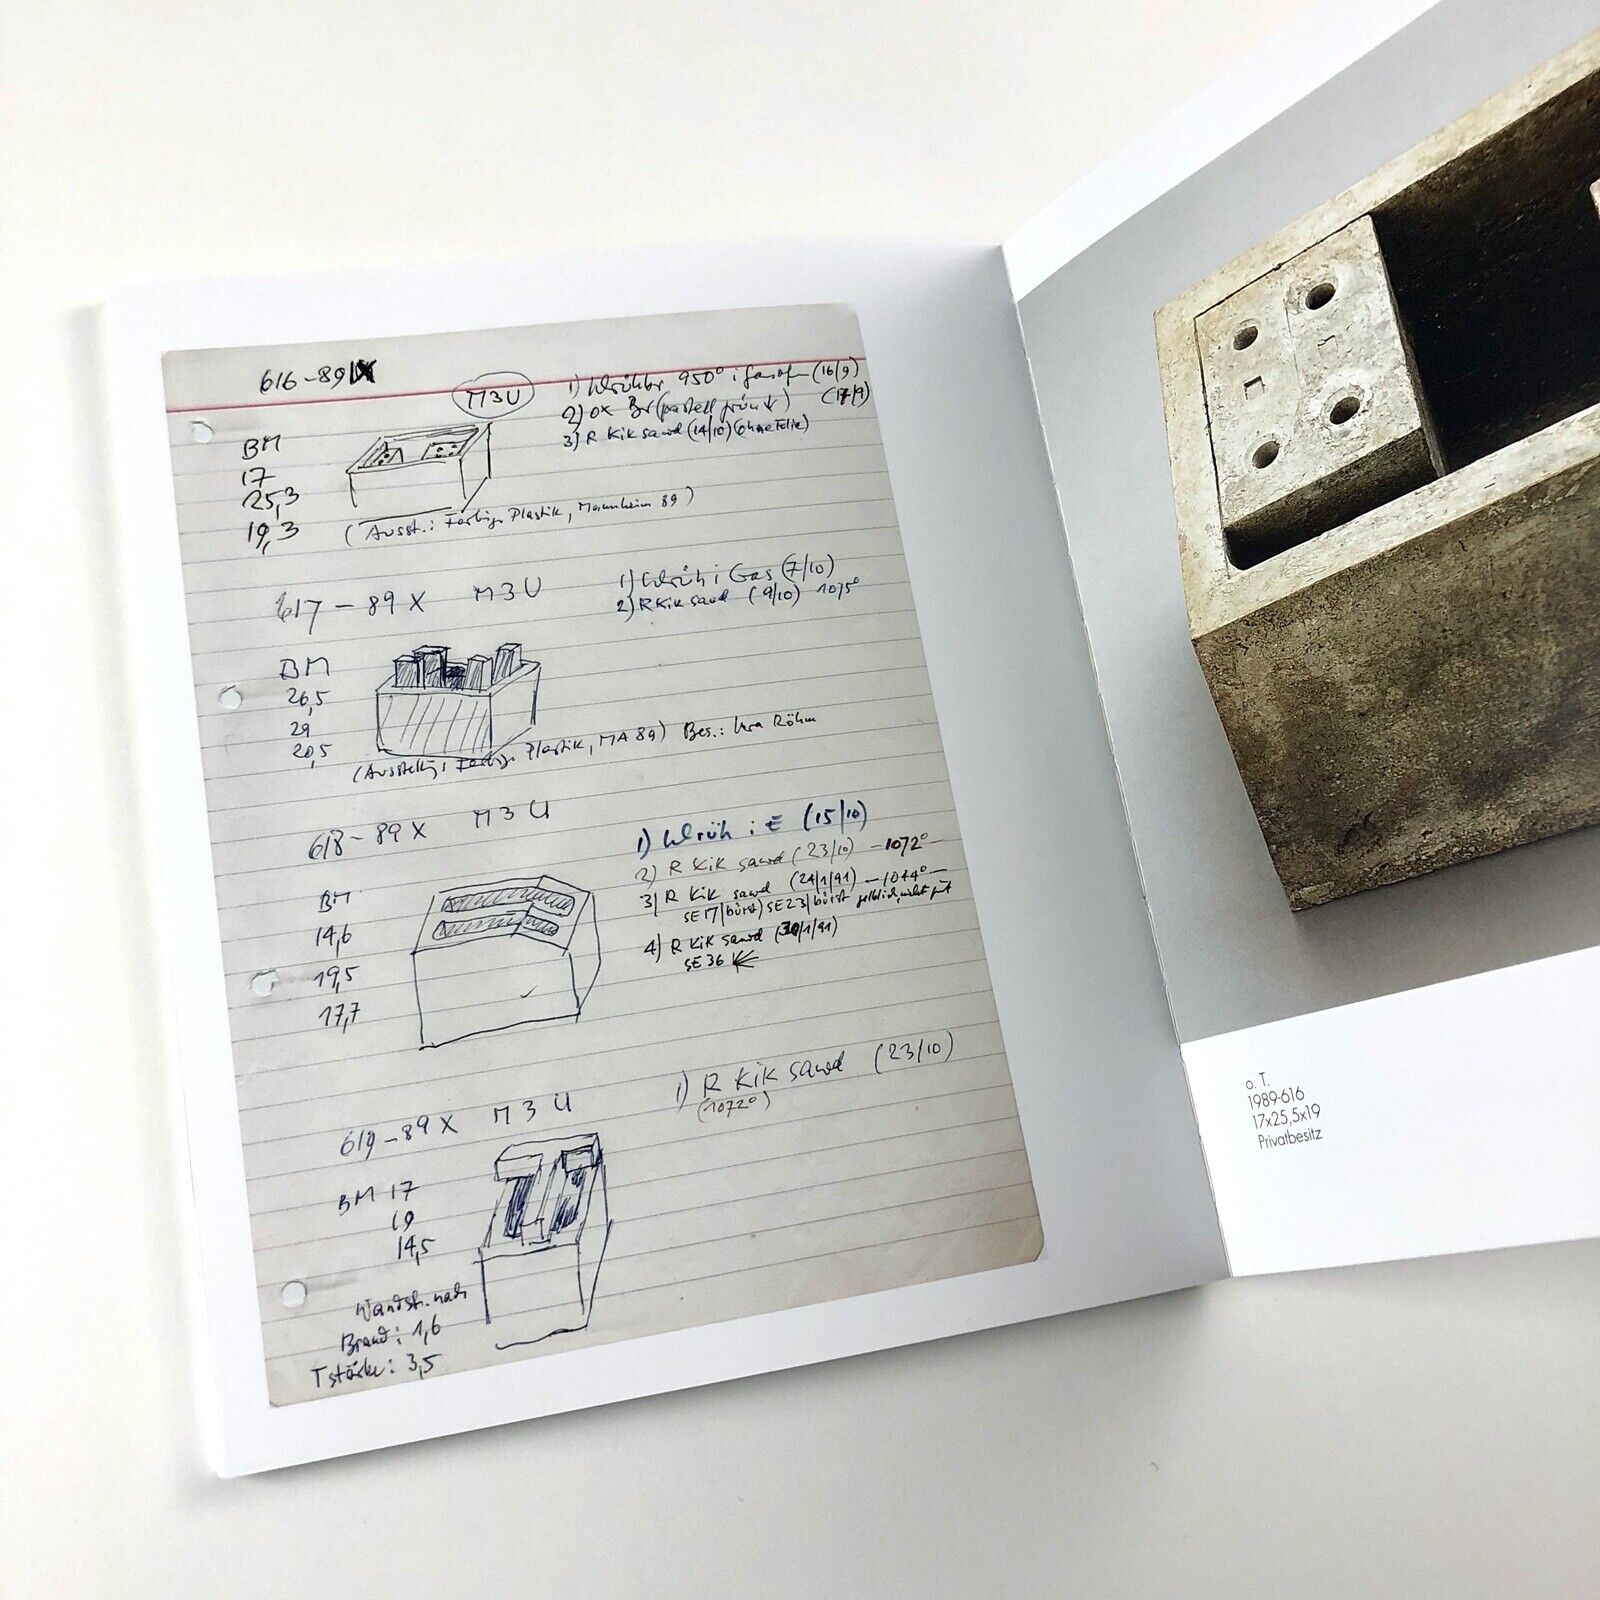 616-89
M3U
1) 950° i (16/9)
2) OX Br (pastell grün) (17/9)
3) R Kik sawd (14/10) (ohne Folie)
BM
17
25,3
19,3
(Ausst.: Farbige Plastik, Mannheim 89)
617-89 X M3U
1) i Gas (7/10)
2) R Kik sawd (9/10) 1075°
BM
26,5
29
20,5
Farbige Plastik, MA 89) Bes.: Röhm
618-89 X M3U
1) i E (15/10)
2) R Kik sawd (23/10) -1072°-
3) R Kik sawd (24/1/91) -1044°-
SE17/bürst) SE23/bürst
4) R Kik sawd (30/1/91)
SE36
BM
14,6
19,5
17,7
619-89 X M3U
1) R Kik sawd (23/10)
(1072°)
BM 17
19
14,5
Wandst. nach
Brand: 1,6
Tstärke: 3,5
o. T.
1989-616
17x25,5x19
Privatbesitz